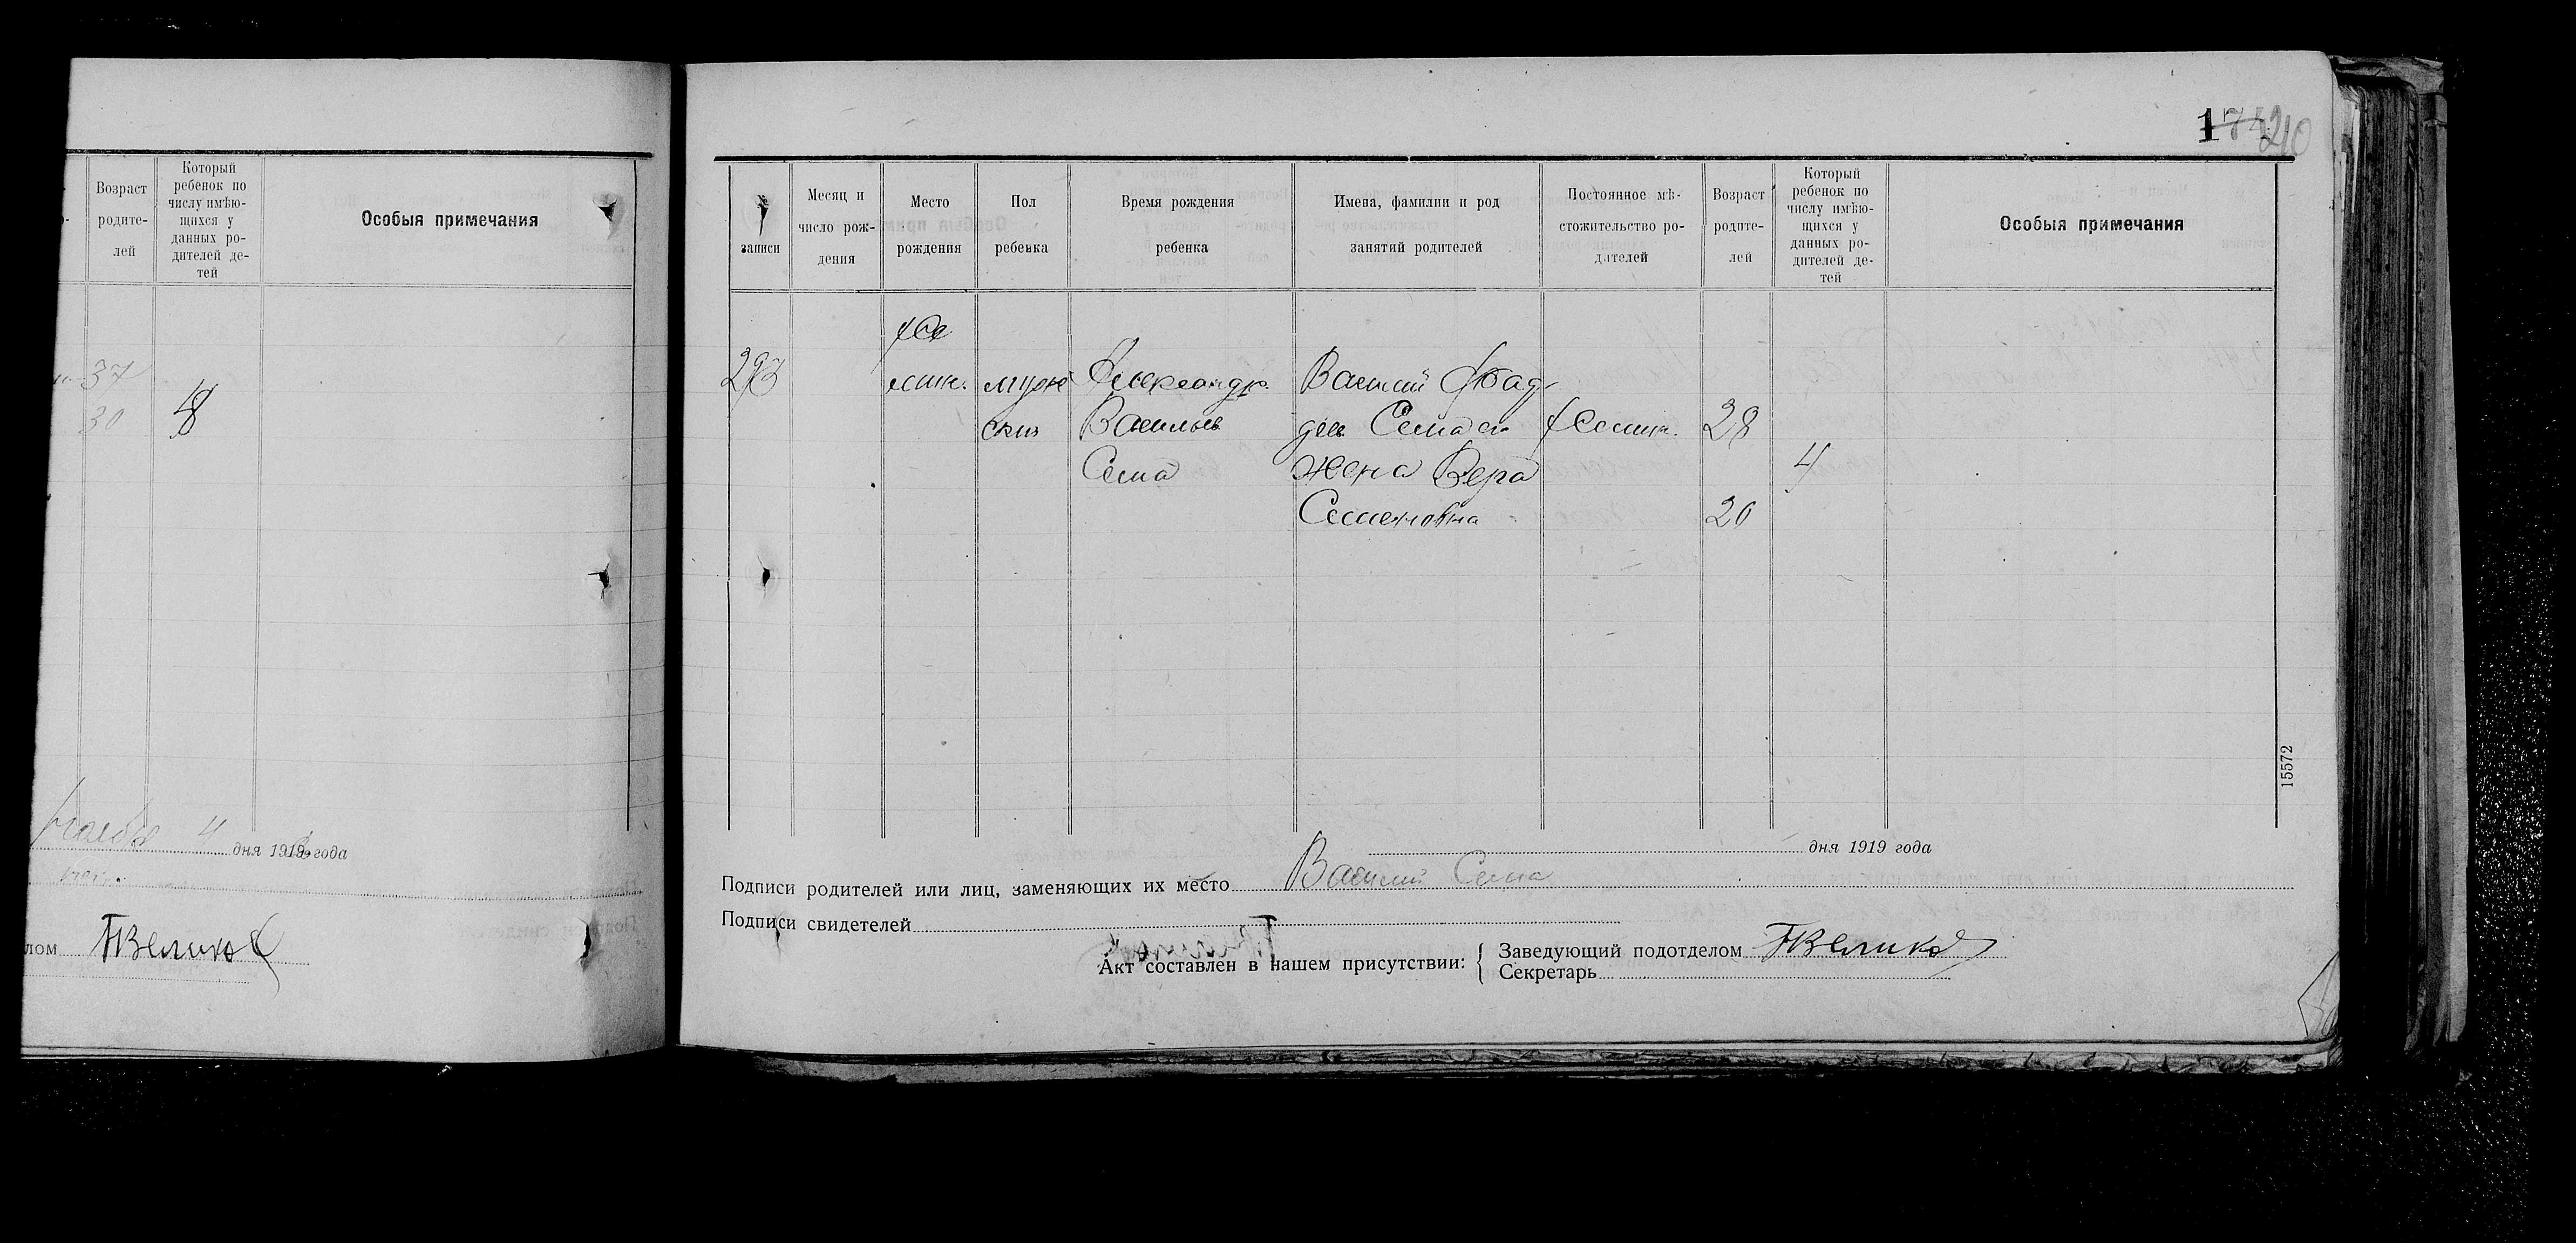 Возраст родите- лей
Который ребенок по числу имѣю- щихся у данных ро- дителей де- тей
Особыя примечания
37
30
8
4 дня 1919 года
лом
210
записи
Месяц и число рож- дения
Место рождения
Пол ребенка
Время рождения ребенка
Имена, фамилии и род занятий родителей
Постоянное мѣ- стожительство ро- дителей
Возраст родите- лей
Который ребенок по числу имѣю- щихся у данных ро- дителей де- тей
Особыя примечания
293
муж Александр Василий Фад
ский Васильев деев Сема 28
Сема жена Вера 4
Семеновна 20
15572
дня 1919 года
Подписи родителей или лиц, заменяющих их место Василий Сема
Подписи свидетелей
Акт составлен в нашем присутствии: Заведующий подотделом
Секретарь